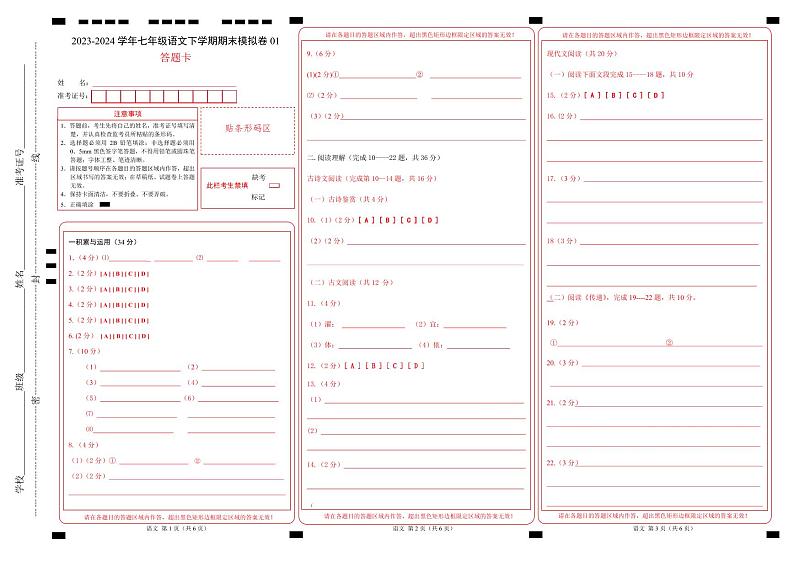 2023-2024 学年七年级语文下学期期末模拟卷 01
答题卡
姓 名:
准考证号:
注意事项
1. 答题前,考生先将自己的姓名、准考证号填写清
楚,并认真检查监考员所粘贴的条形码。
2. 选择题必须用 2B 铅笔填涂;非选择题必须用
0.5mm 黑色签字笔答题,不得用铅笔或圆珠笔
答题;字体工整、笔迹清晰。
3. 请按题号顺序在各题目的答题区域内作答,超出
区域书写的答案无效;在草稿纸、试题卷上答题
无效。
4. 保持卡面清洁,不要折叠、不要弄破。
5. 正确填涂
贴条形码区
此栏考生禁填
缺考
标记
准考证号
姓名
班级
学校
线
封
密
一积累与运用(34 分)
1.(4 分)⑴ ⑵
2.(2 分)[A][B][C][D]
3.(2 分)[A][B][C][D]
4.(2 分)[A][B][C][D]
5.(2 分)[A][B][C][D]
6.(2 分) [A][B][C][D]
7.(10 分)
(1) (2)
(3) (4)
(5) (6)
⑺
⑻
8.(4 分)
(1)(2 分)① ②
(2)(2 分)
请在各题目的答题区域内作答,超出黑色矩形边框限定区域的答案无效!
语文 第 1 页(共 6 页)
请在各题目的答题区域内作答,超出黑色矩形边框限定区域的答案无效!
9.(6 分)
(1)(2 分)① ②
⑵(2 分)
(3)(2 分)
二.阅读理解(完成 10——22 题,共 36 分)
古诗文阅读(完成第 10—14 题,共 16 分)
(一)古诗鉴赏(共 4 分)
10.(1)(2 分)[A][B][C][D]
(2)(2 分)
(二)古文阅读(共 12 分)
11.(4 分)
(1)濯: (2)宜:
(3)体: (4)依:
12.(2 分)[A][B][C][D]
13.(4 分)
(1)
(2)
14.(2 分)
(
请在各题目的答题区域内作答,超出黑色矩形边框限定区域的答案无效!
语文 第 2 页(共 6 页)
请在各题目的答题区域内作答,超出黑色矩形边框限定区域的答案无效!
现代文阅读(共 20 分)
(一)阅读下面文段完成 15——18 题,共 10 分
15.(2 分)[A][B][C][D]
16.(2 分)
17.(3 分)
18(3 分)
(二)阅读《传递》,完成 19---22 题,共 10 分。
19.(2 分)
① ②
20.(3 分)
21.(2 分)
22.(3 分)
请在各题目的答题区域内作答,超出黑色矩形边框限定区域的答案无效!
语文 第 3 页(共 6 页)